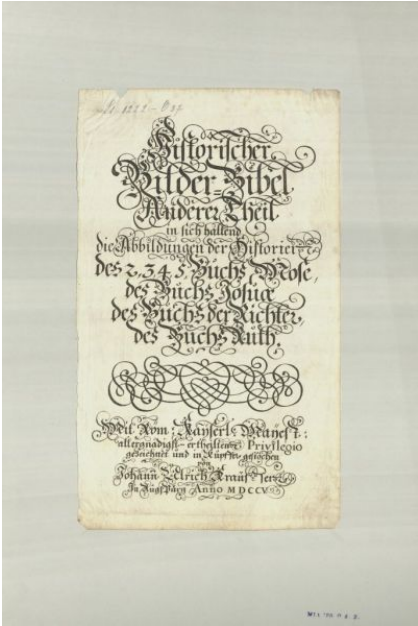 Historischer
Bilder-Bibel
Anderer Theil
in sich haltend
die Abbildungen der Historien
des 2, 3 4 5 Buchs Mose,
des Buchs Josua
des Buchs der Richter,
des Buchs Ruth.
Mit Röm: Kayserl:
allergnädigst-ertheiltem Privilegio
gezeichnet und in Kupffer gestochen
von
Johann Ulrich Krausen
In Augspurg Anno MDCCV